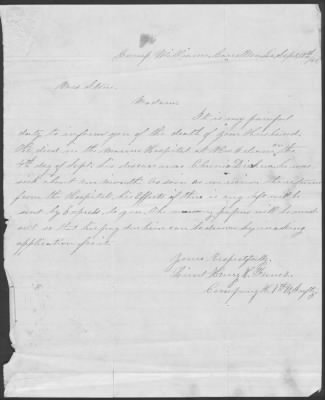 Camp Williams, Sept
Mrs
Madam
It is my painful
duty to inform you of the death of your Husband
He died in the Marine Hospital at New Orleans the
4th day of Sept. his disease was Chronic Diarrhea he was
sick about one month. As soon as we receive the returns
from the Hospital, his Effects if there is any left will be
sent by Express to you. The papers will be made
out so that his pay due him can be drawn by making
application for it.
Yours Respectfully,
Lieut Henry
Company K.